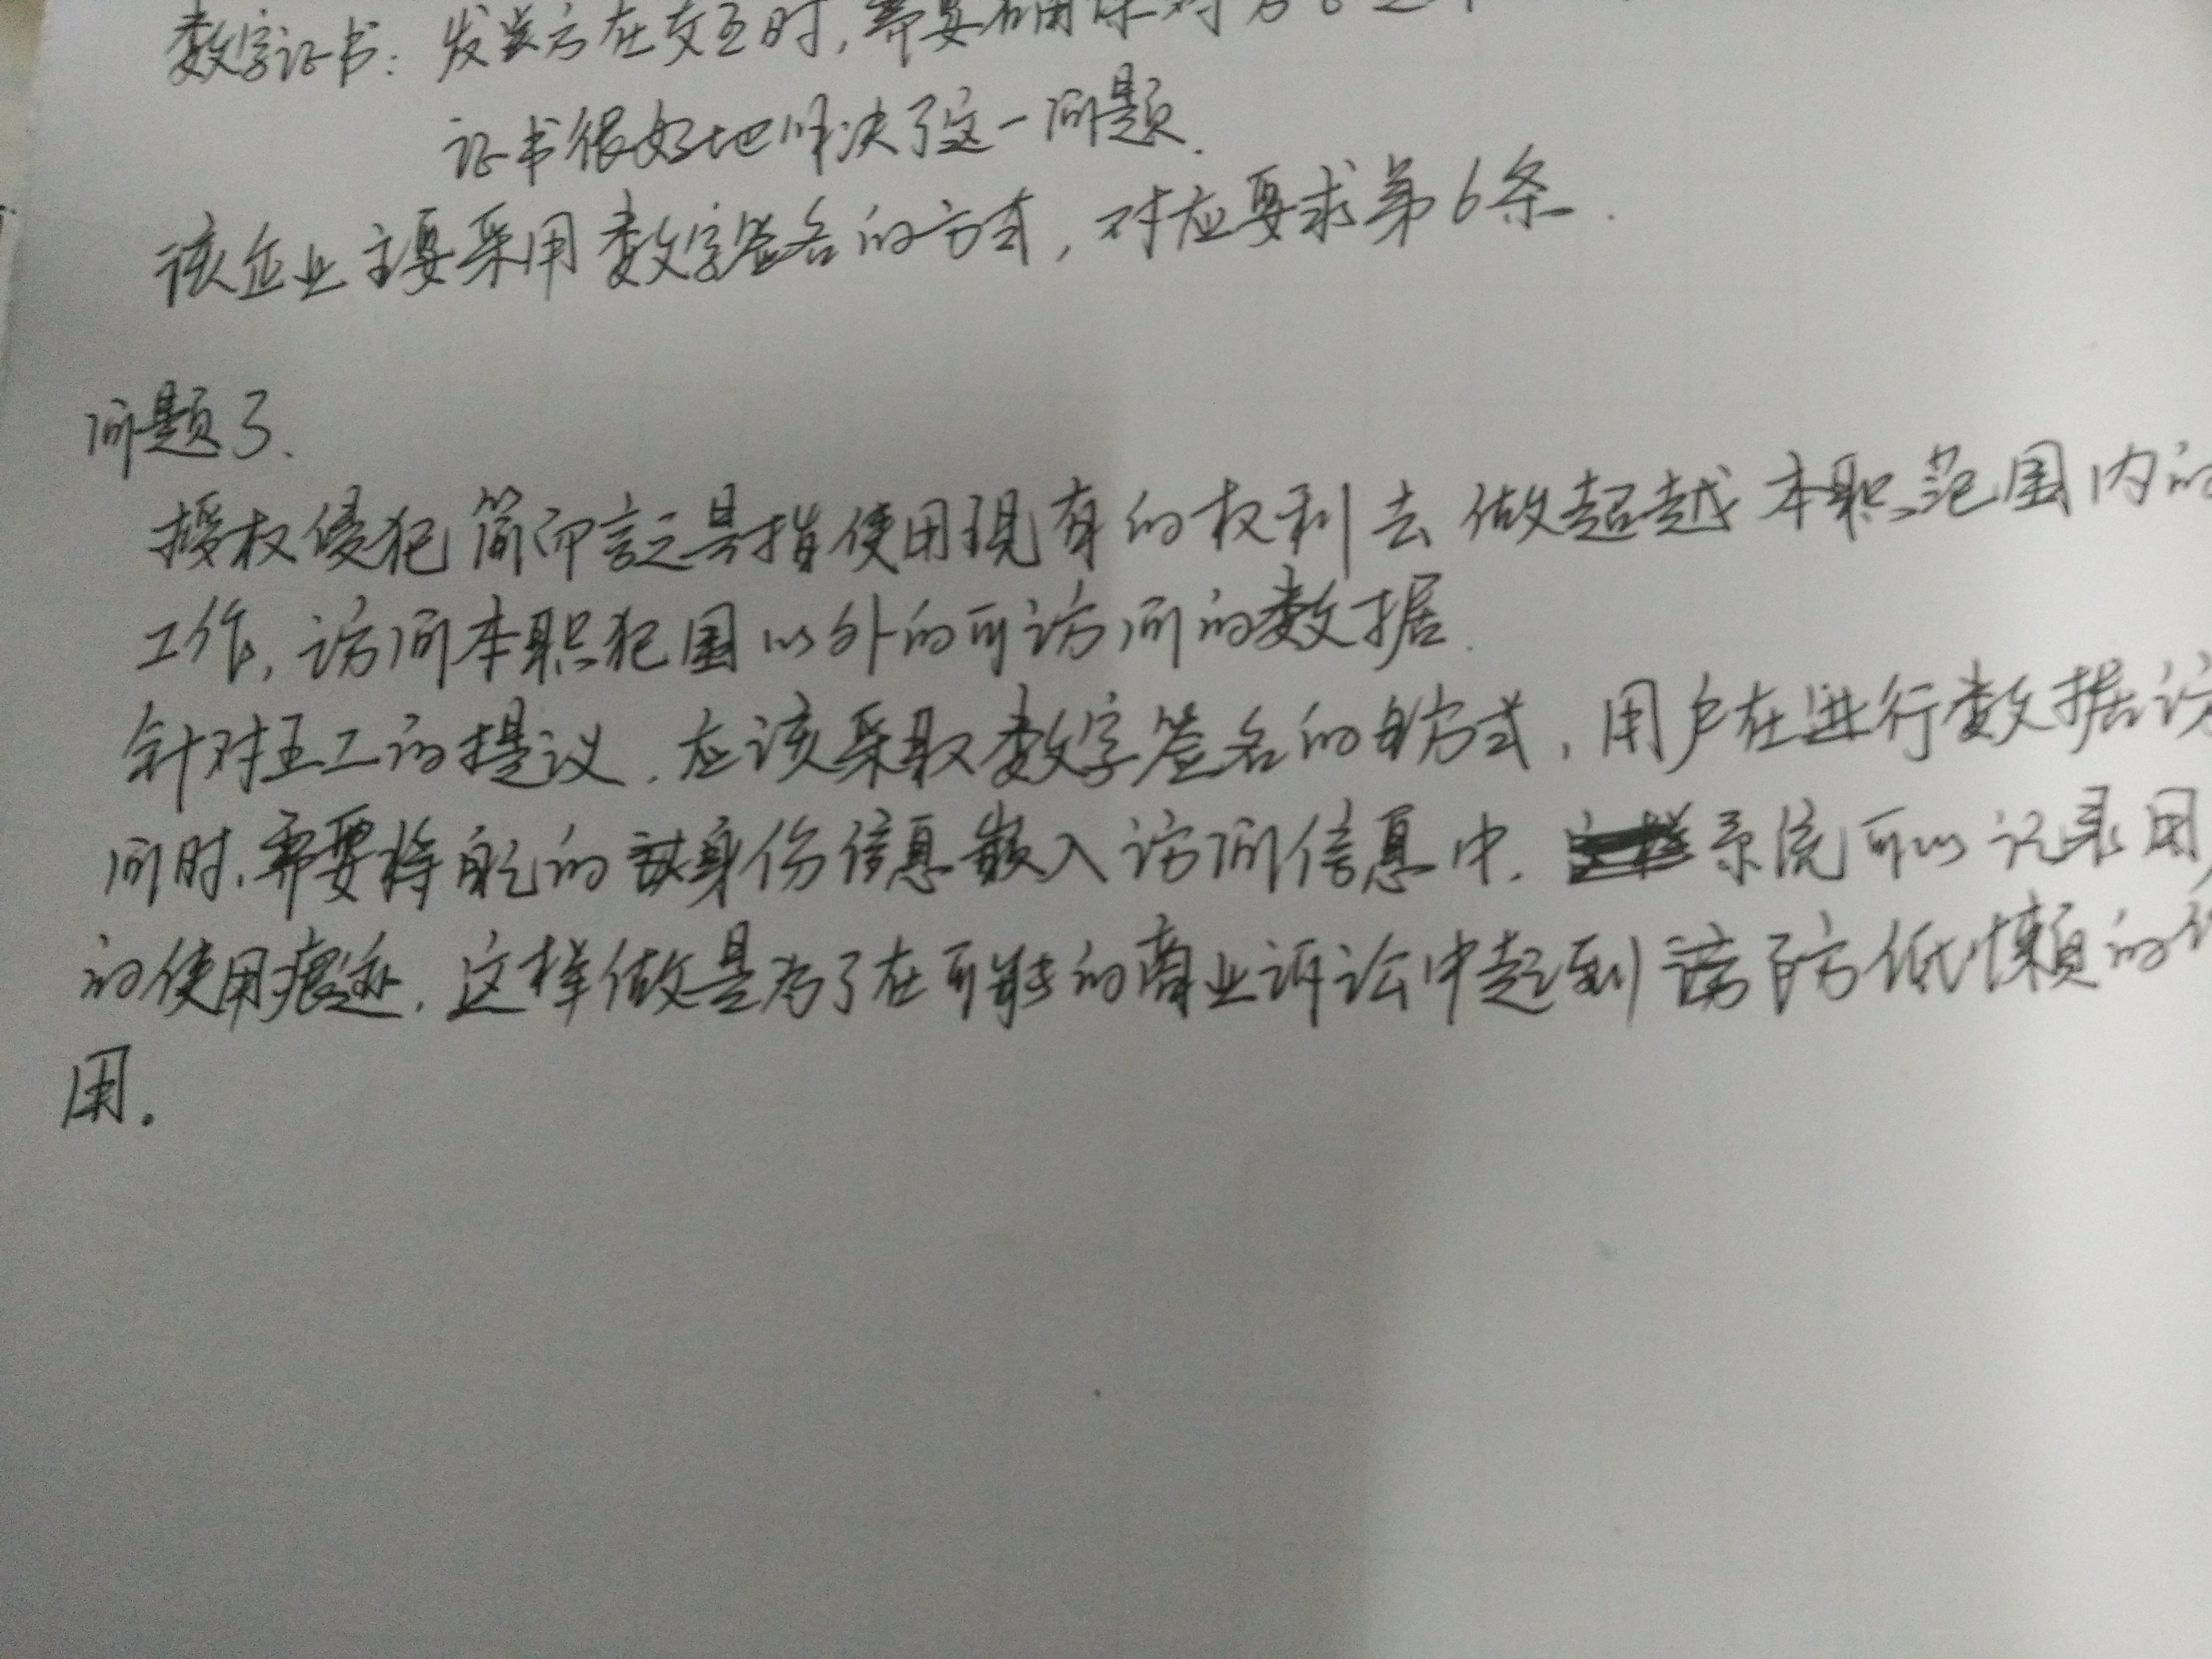 数字证书：发送方在交互时，需要确保对方
证书很好地解决了这一问题.
该企业主要采用数字签名的方式，对应要求第6条.
问题3.
授权侵犯简而言之是指使用现有的权利去做超越本职范围内的
工作，访问本职犯围以外的可访问的数据.
针对王工的提议，应该采取数字签名的方式，用户在进行数据访
问时，需要将自己的身份信息嵌入访问信息中. 系统可以记录用户
的使用痕迹. 这样做是为了在可能的商业诉讼中起到预防低懒的
用.